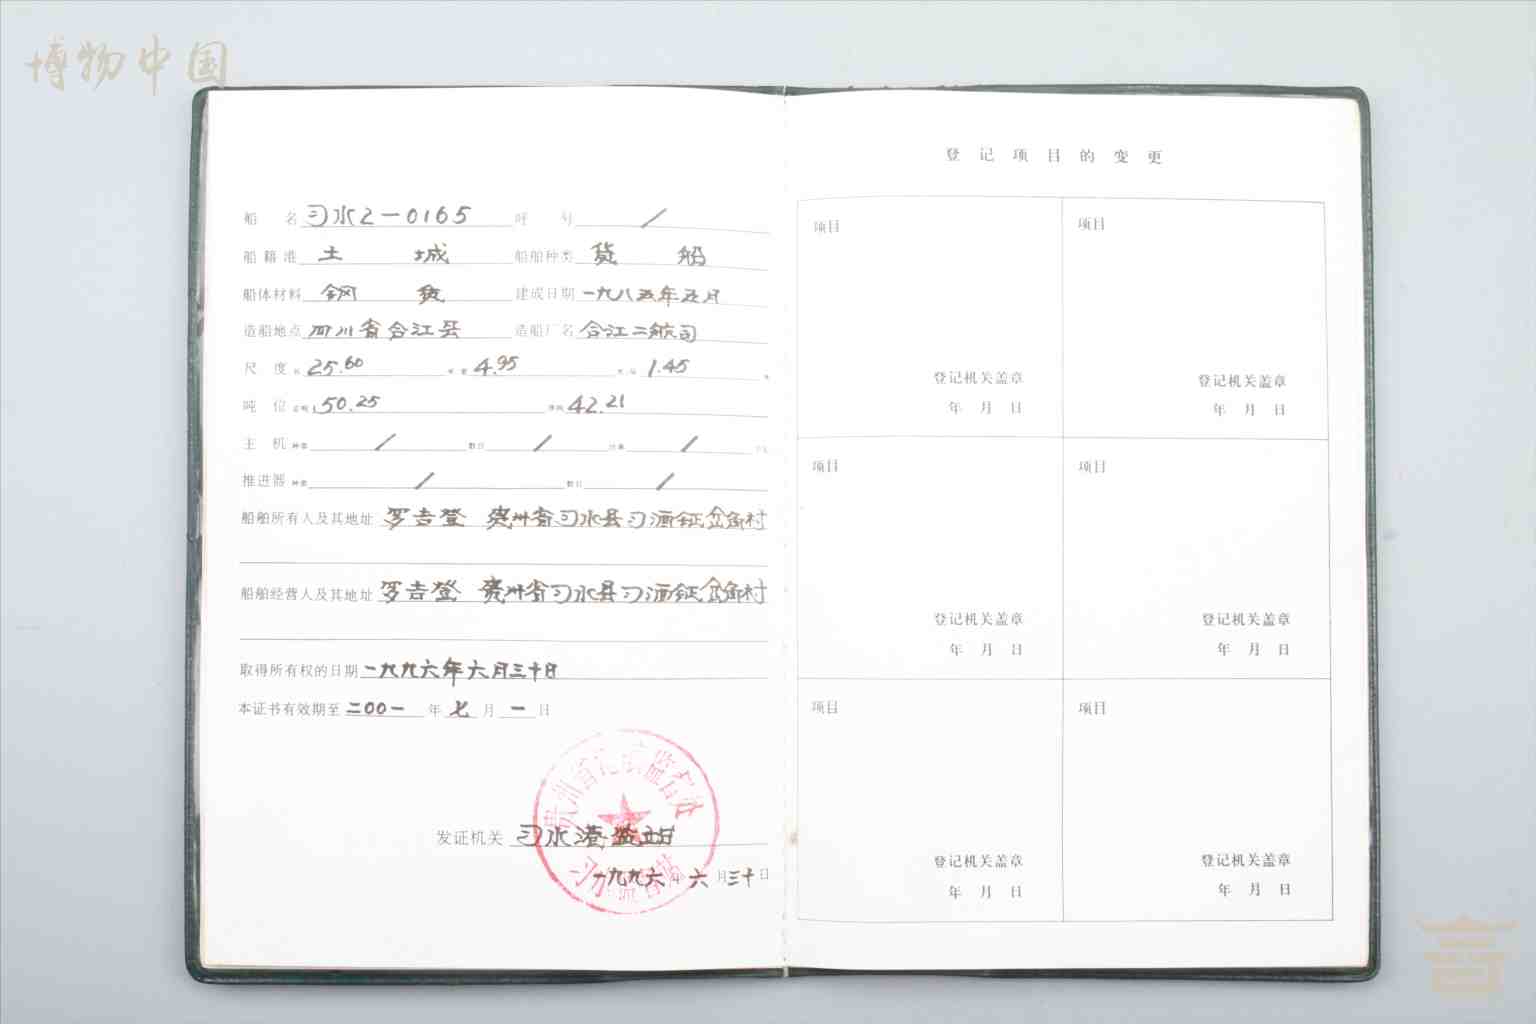 博物中国
船 名 习水2-0165 呼 号 /
船籍港 土城 船舶种类 货船
船体材料 钢质 建成日期 一九八五年五月
造船地点 四川省合江县 造船厂名 合江二航司
尺 度 长 25.60 4.95 1.45
吨 位 总吨 50.25 净吨 42.21
主 机 种类 / 数目 / /
推进器 种类 / 数目 /
船舶所有人及其地址 罗吉登 贵州省习水县习酒 村
船舶经营人及其地址 罗吉登 贵州省习水县习酒 村
取得所有权的日期 一九九六年六月三十日
本证书有效期至 二00一 年 七 月 一 日
发证机关 习水港监站
一九九六年六月三十日
登记项目的变更
项目
登记机关盖章
年 月 日
项目
登记机关盖章
年 月 日
项目
登记机关盖章
年 月 日
项目
登记机关盖章
年 月 日
项目
登记机关盖章
年 月 日
项目
登记机关盖章
年 月 日